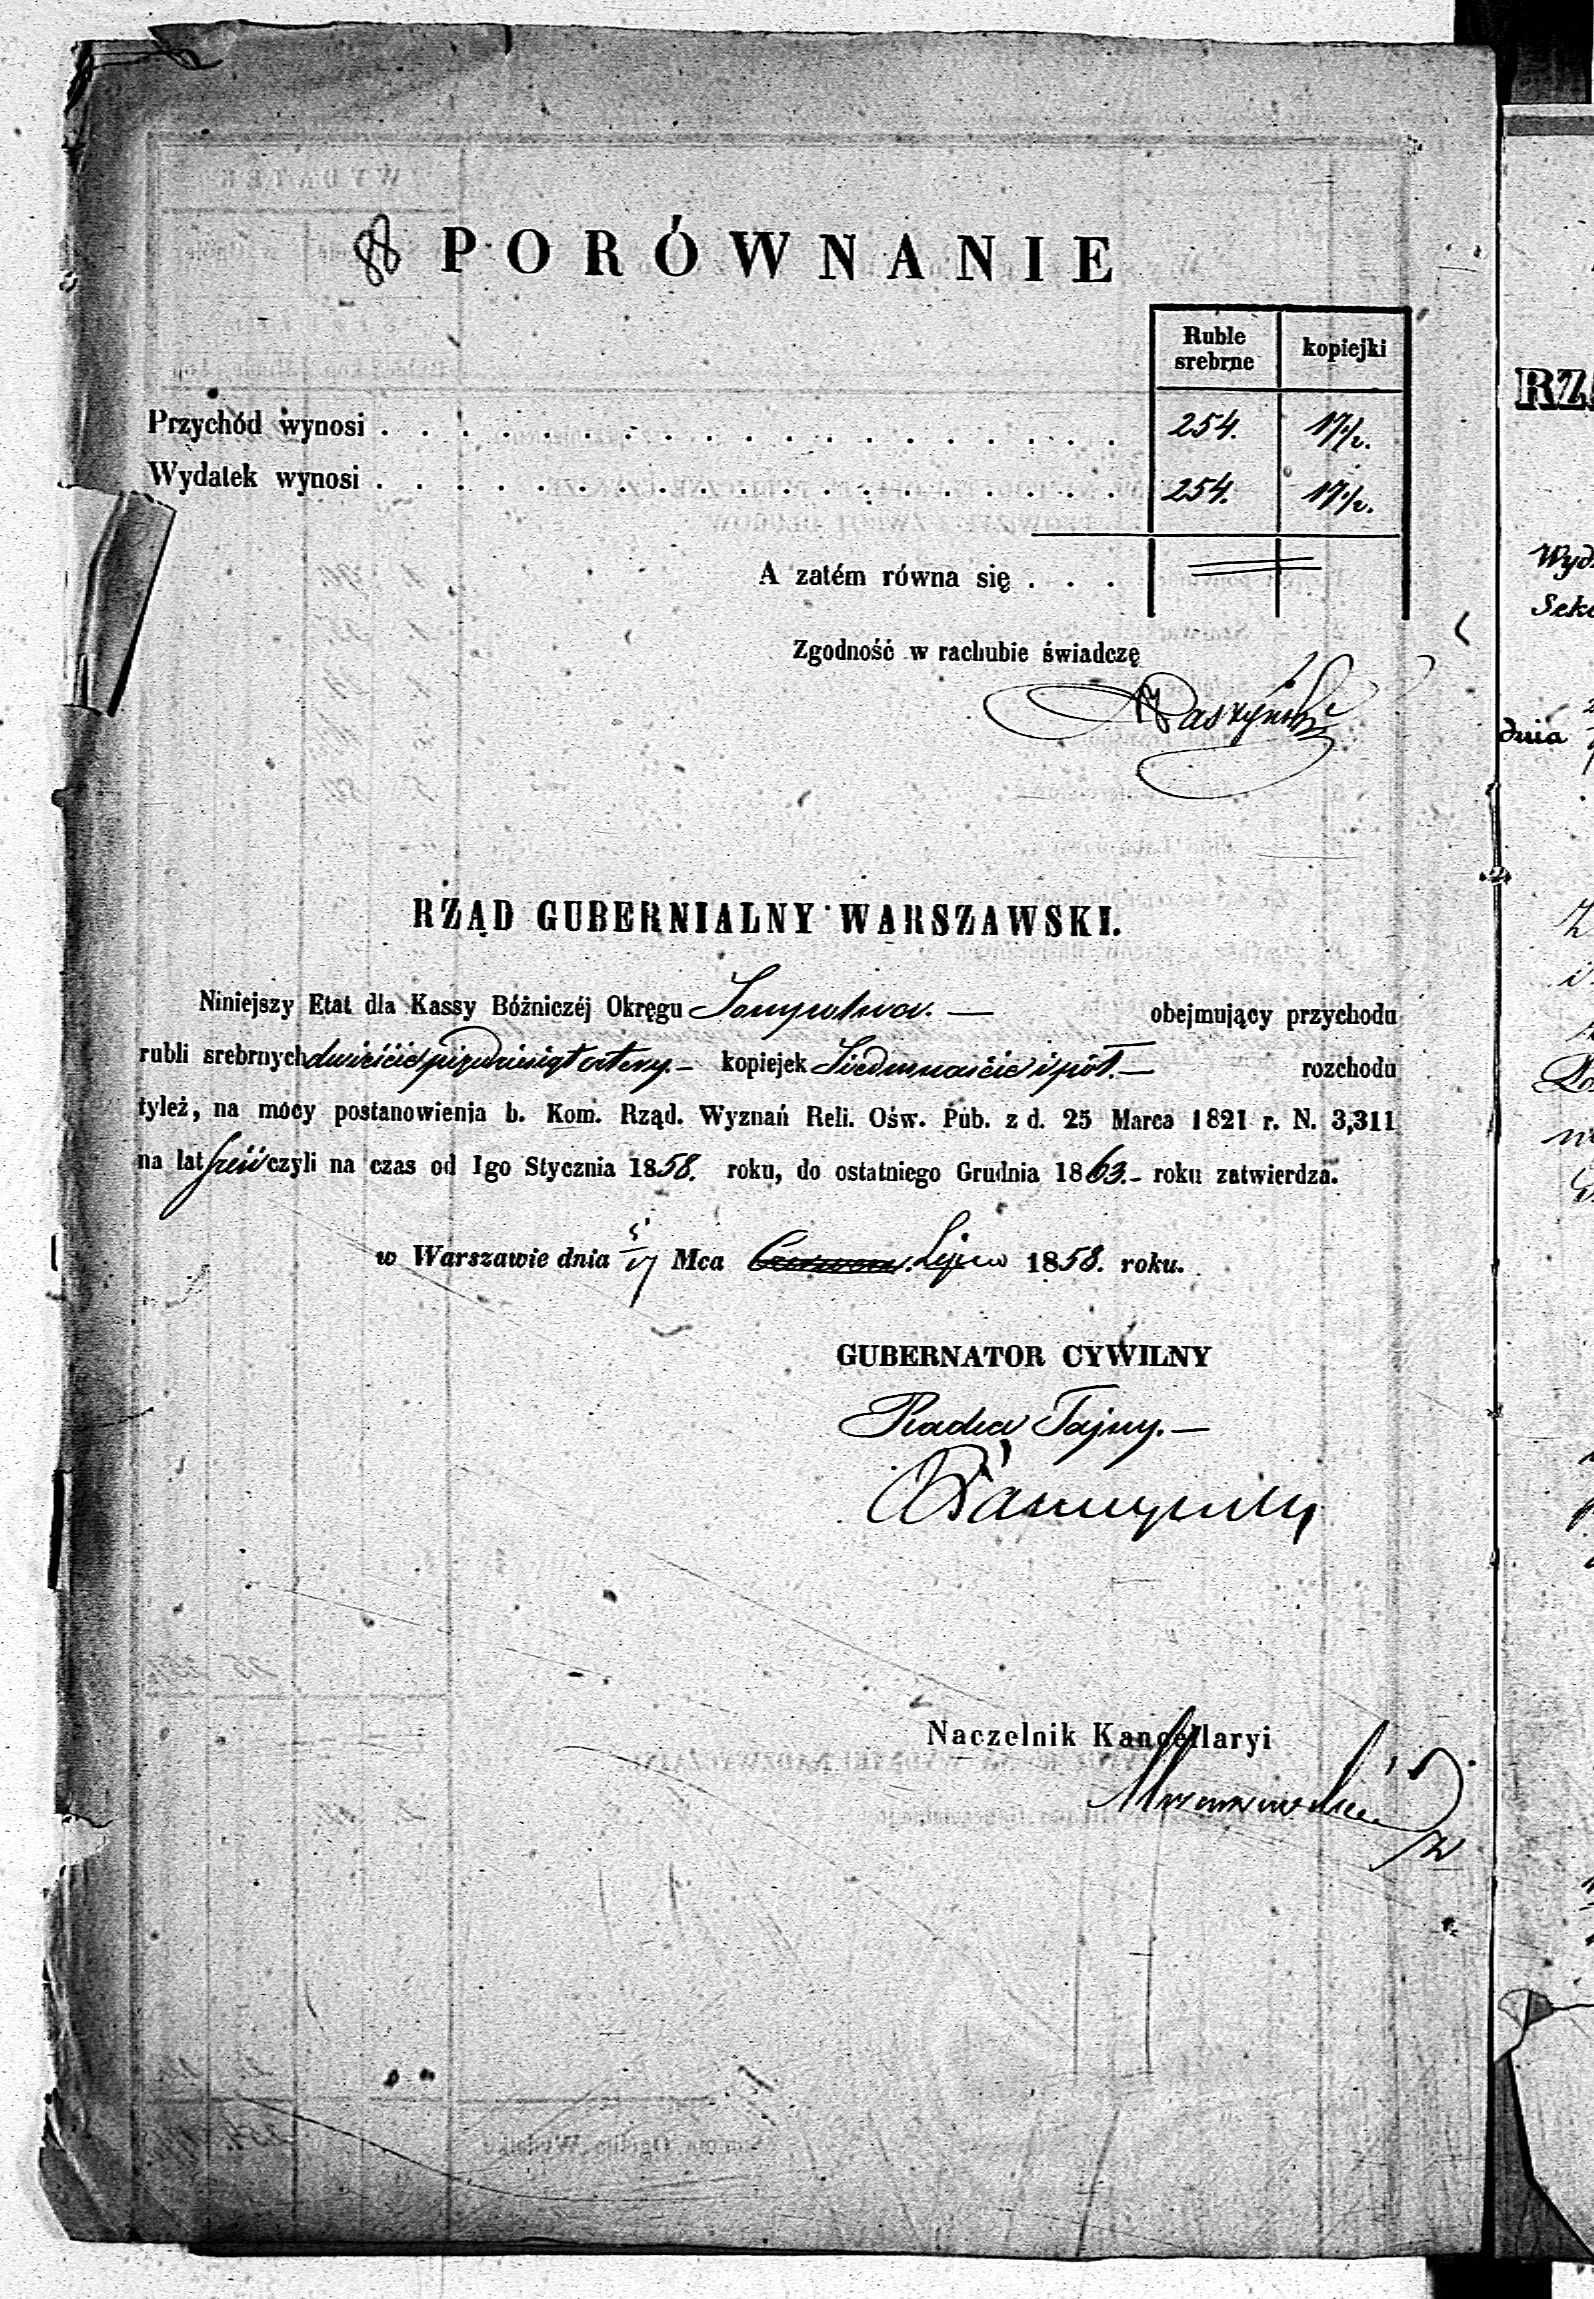 PORÓWNANIE
Ruble srebrne kopiejki
Przychód wynosi . . . . . . . . . . . . . . . . . . . 254. 17 1/2.
Wydatek wynosi . . . . . . . . . . . . . . . . . . . 254. 17 1/2.
A zatém równa się . . .
Zgodność w rachubie świadczę
RZĄD GUBERNIALNY WARSZAWSKI.
Niniejszy Etat dla Kassy Bóżniczéj Okręgu Sompolna. — obejmujący przychodu
rubli srebrnych dwieście pięćdziesiąt cztery. — kopiejek Siedmnaście i pół. — rozchodu
tyleż, na mocy postanowienia b. Kom. Rząd. Wyznań Reli. Ośw. Pub. z d. 25 Marca 1821 r. N. 3,311
na lat sześć czyli na czas od 1go Stycznia 1858. roku, do ostatniego Grudnia 1863. - roku zatwierdza.
w Warszawie dnia 5/17 Mca Czerwca. Lipca 1858. roku.
GUBERNATOR CYWILNY
Radca Tajny. —
Naczelnik Kancellaryi
RZ
Wyd
Sek
dnia